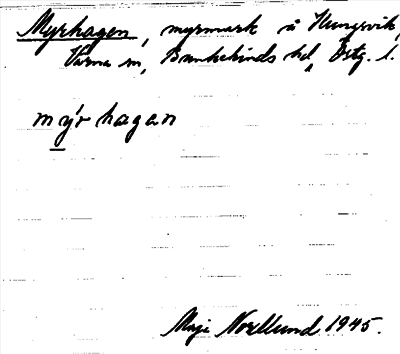 Myrhagen, myrmark å Hungsvik,
Värna sn, Bankekinds hd, Östg. l.
mýr hagan
Maji Norllund 1945.